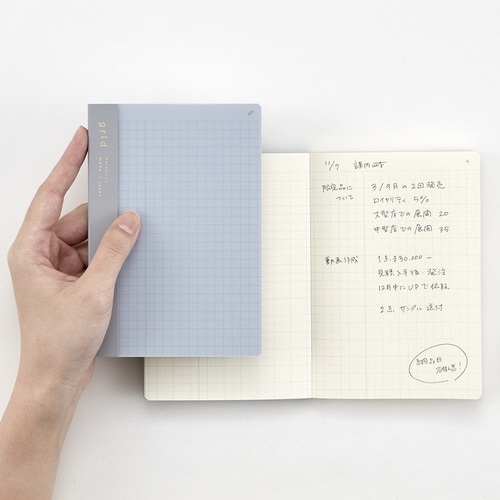 grid
11/7
について
3/9月の2回発売
ロイヤリティ 5%
大型店での展開 20
中型店での展開 35
動画作成
1点 ¥30,000—
見積入手後・発注
12月中にUPで依頼
2点 サンプル送付
納品日